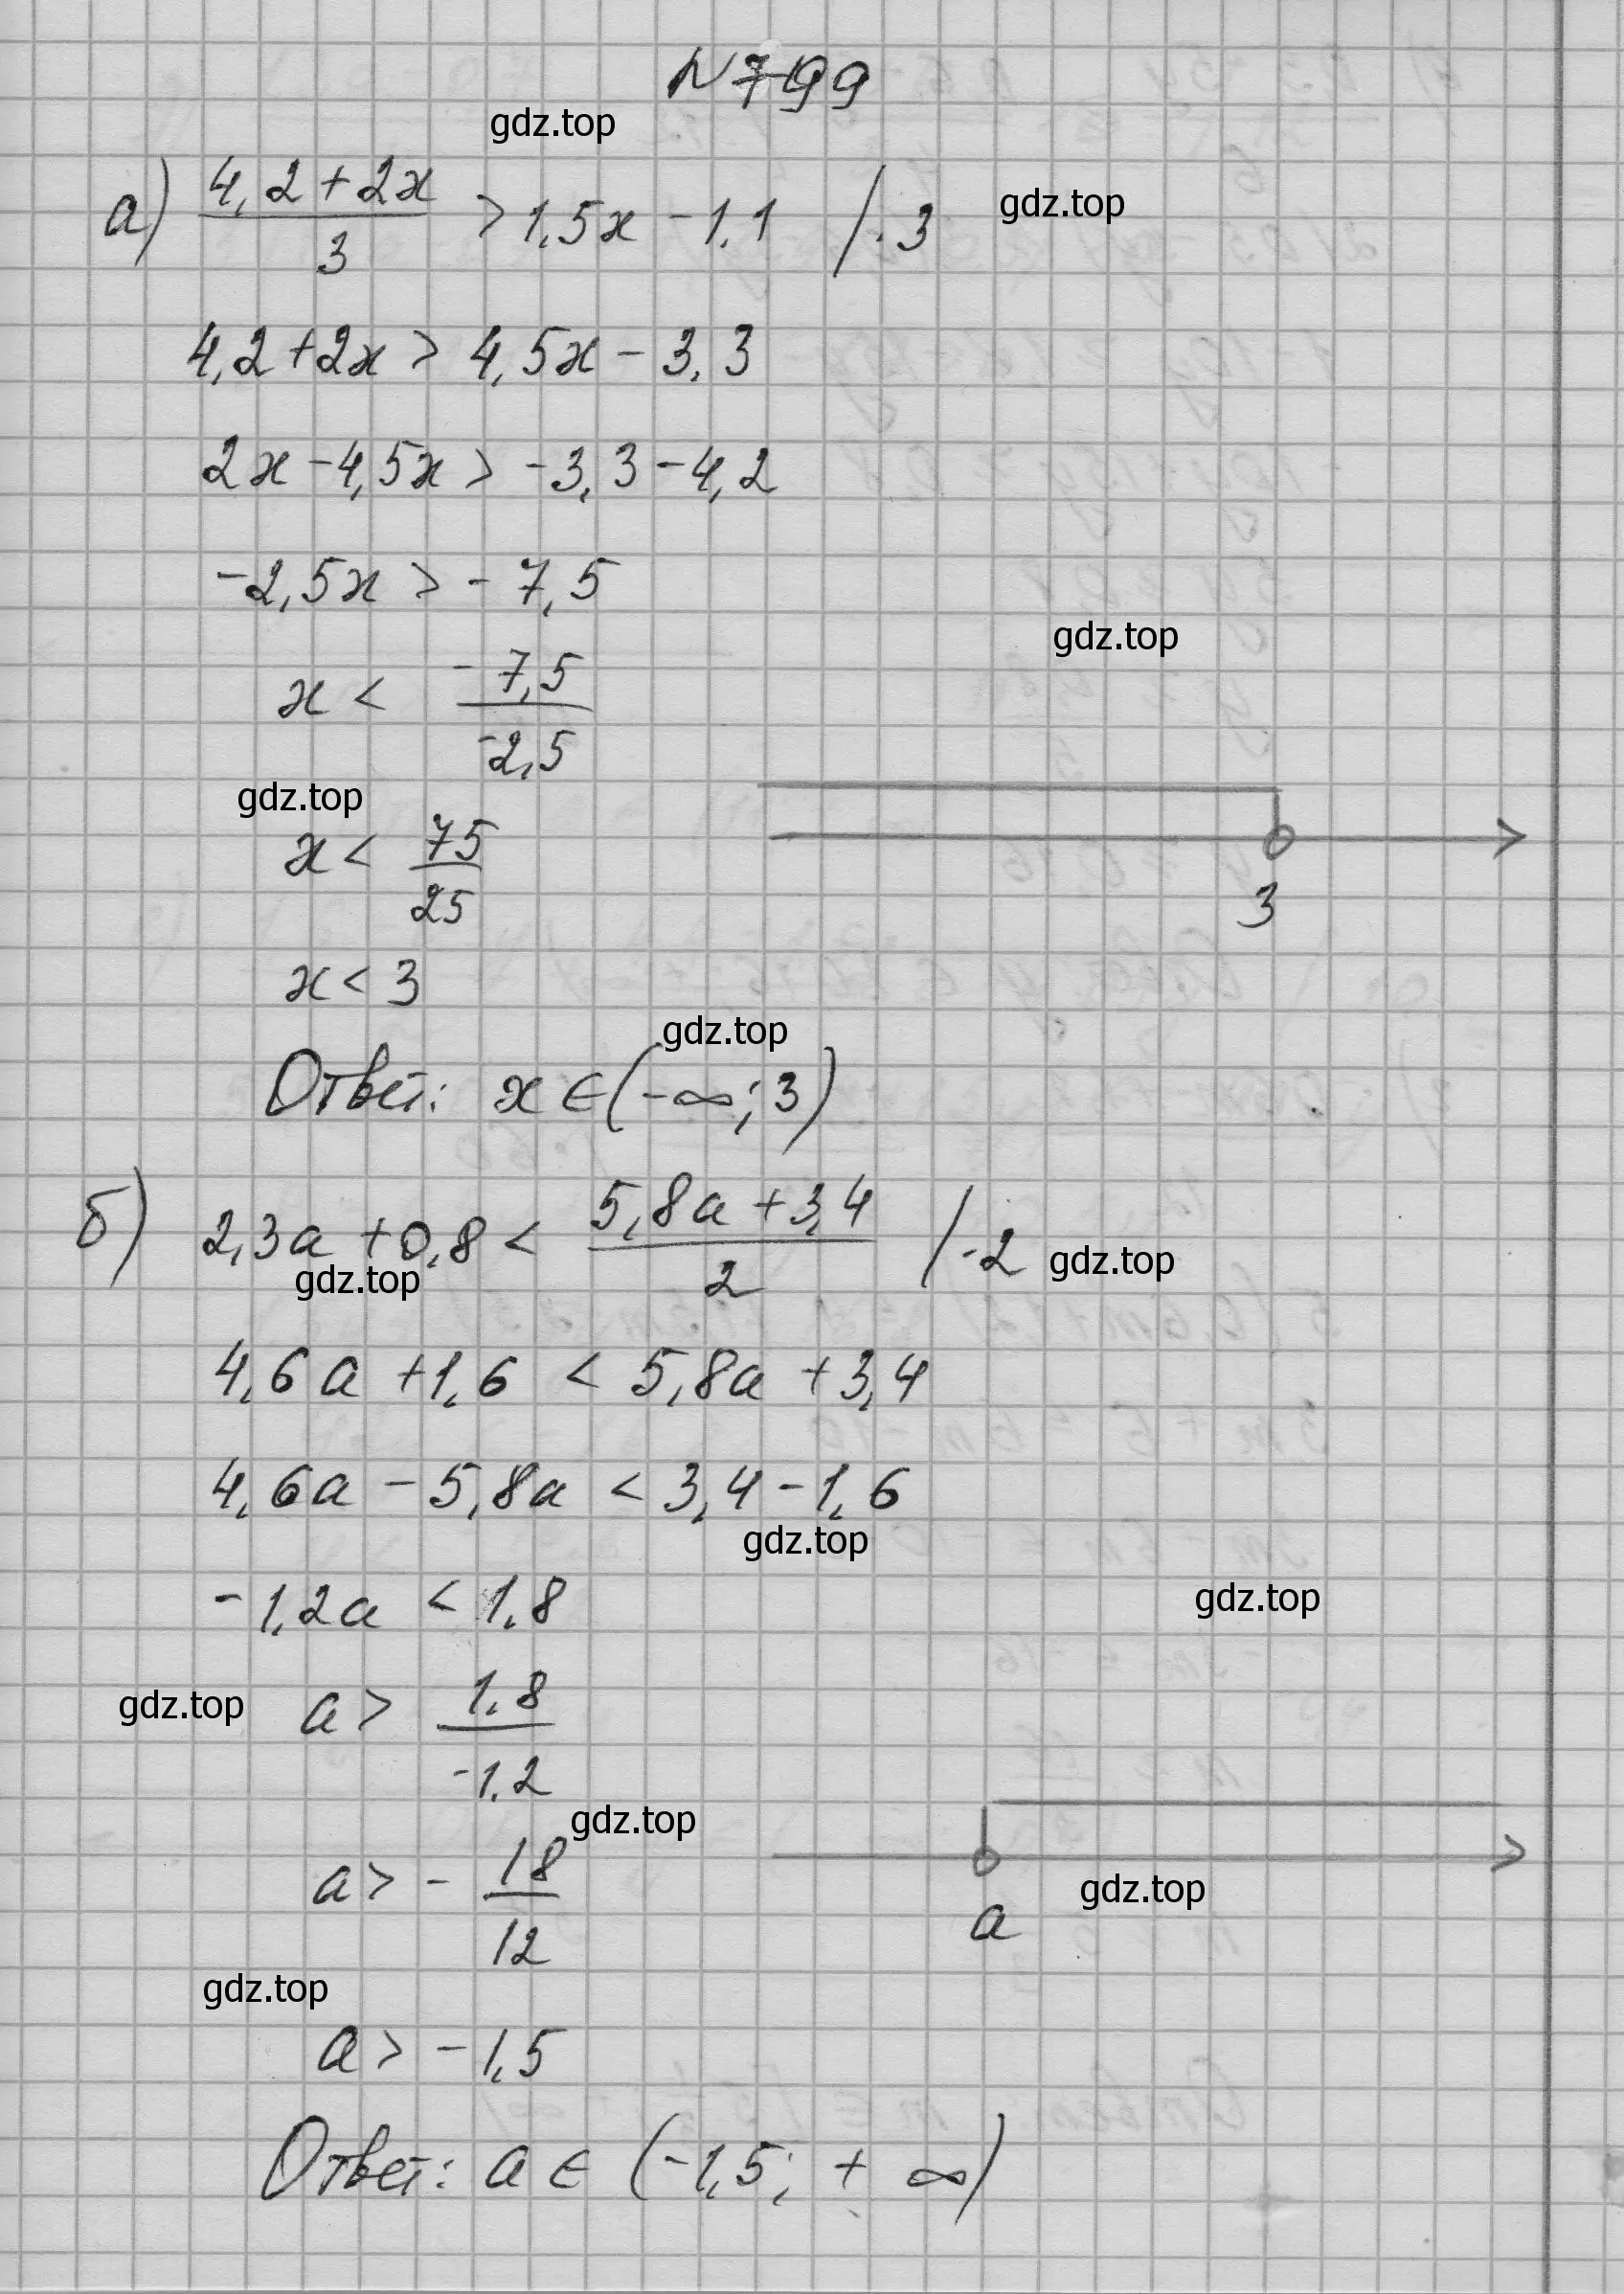 N 799
gdz.top
а) (4,2+2x)/3 > 1,5x - 1,1 / · 3 gdz.top
4,2+2x > 4,5x - 3,3
2x - 4,5x > -3,3 - 4,2
-2,5x > -7,5
gdz.top
x < -7,5/-2,5
gdz.top
x < 75/25
3
x < 3
gdz.top
Ответ: x ∈ (-∞; 3)
б) 2,3a + 0,8 < (5,8a + 3,4)/2 / · 2 gdz.top
gdz.top
4,6a + 1,6 < 5,8a + 3,4
4,6a - 5,8a < 3,4 - 1,6
gdz.top
-1,2a < 1,8 gdz.top
gdz.top a > 1,8/-1,2
gdz.top
a > - 18/12 gdz.top
a
gdz.top
a > -1,5
Ответ: a ∈ (-1,5; + ∞)